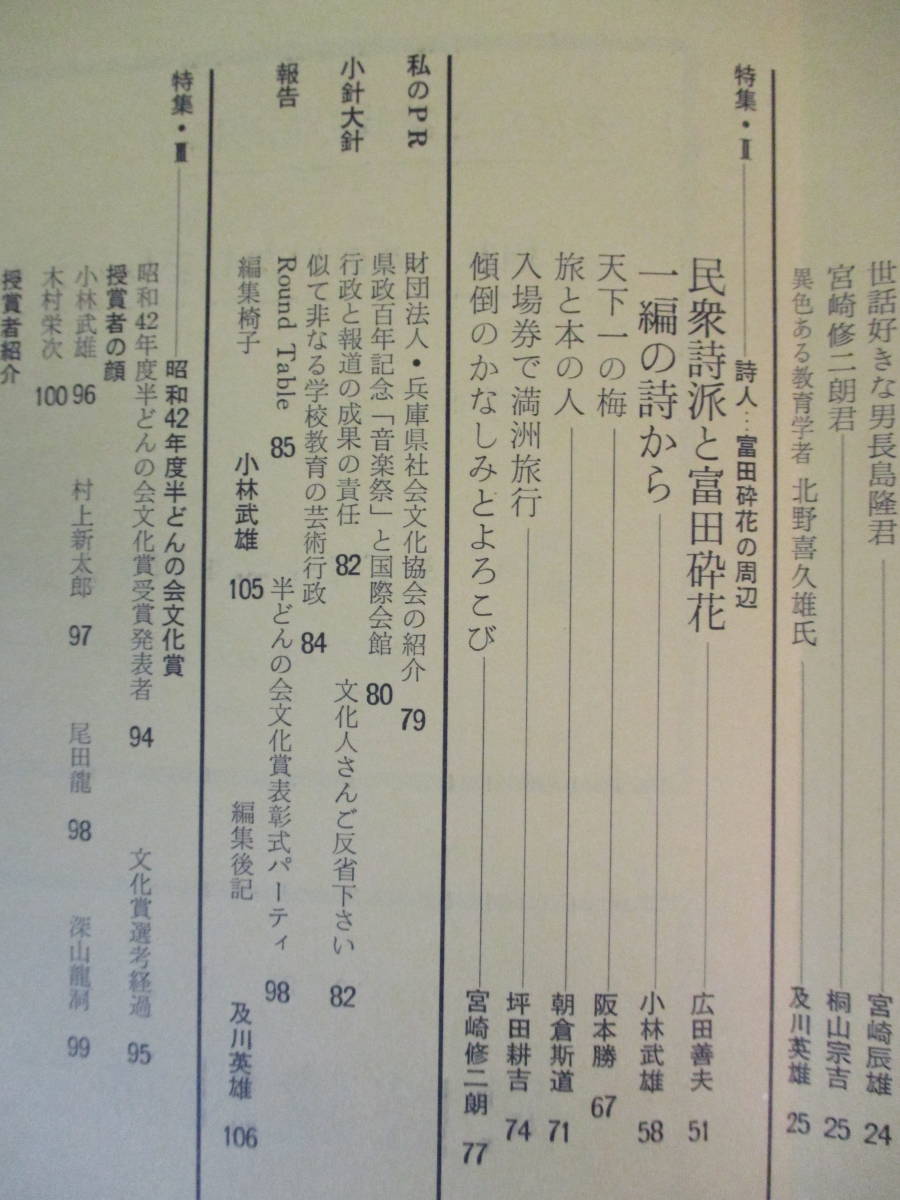 世話好きな男長島隆君 宮崎辰雄 24
宮崎修二朗君 桐山宗吉 25
異色ある教育学者 北野喜久雄氏 及川英雄 25
特集・Ⅱ 詩人…富田砕花の周辺
民衆詩派と富田砕花 広田善夫 51
一編の詩から 小林武雄 58
天下一の梅 阪本勝 67
旅と本の人 朝倉斯道 71
入場券で満洲旅行 坪田耕吉 74
傾倒のかなしみとよろこび 宮崎修二朗 77
私のPR 財団法人・兵庫県社会文化協会の紹介 79
県政百年記念「音楽祭」と国際会館 80
小針大針 行政と報道の成果の責任 82 文化人さんご反省下さい 82
似て非なる学校教育の芸術行政 84
報告 Round Table 85 半どんの会文化賞表彰式パーティ 98
編集椅子 小林武雄 105 編集後記 及川英雄 106
特集・Ⅲ 昭和42年度半どんの会文化賞
昭和42年度半どんの会文化賞受賞発表者 94 文化賞選考経過 95
授賞者の顔
小林武雄 96 村上新太郎 97 尾田龍 98 深山龍洞 99
木村栄次 100
授賞者紹介